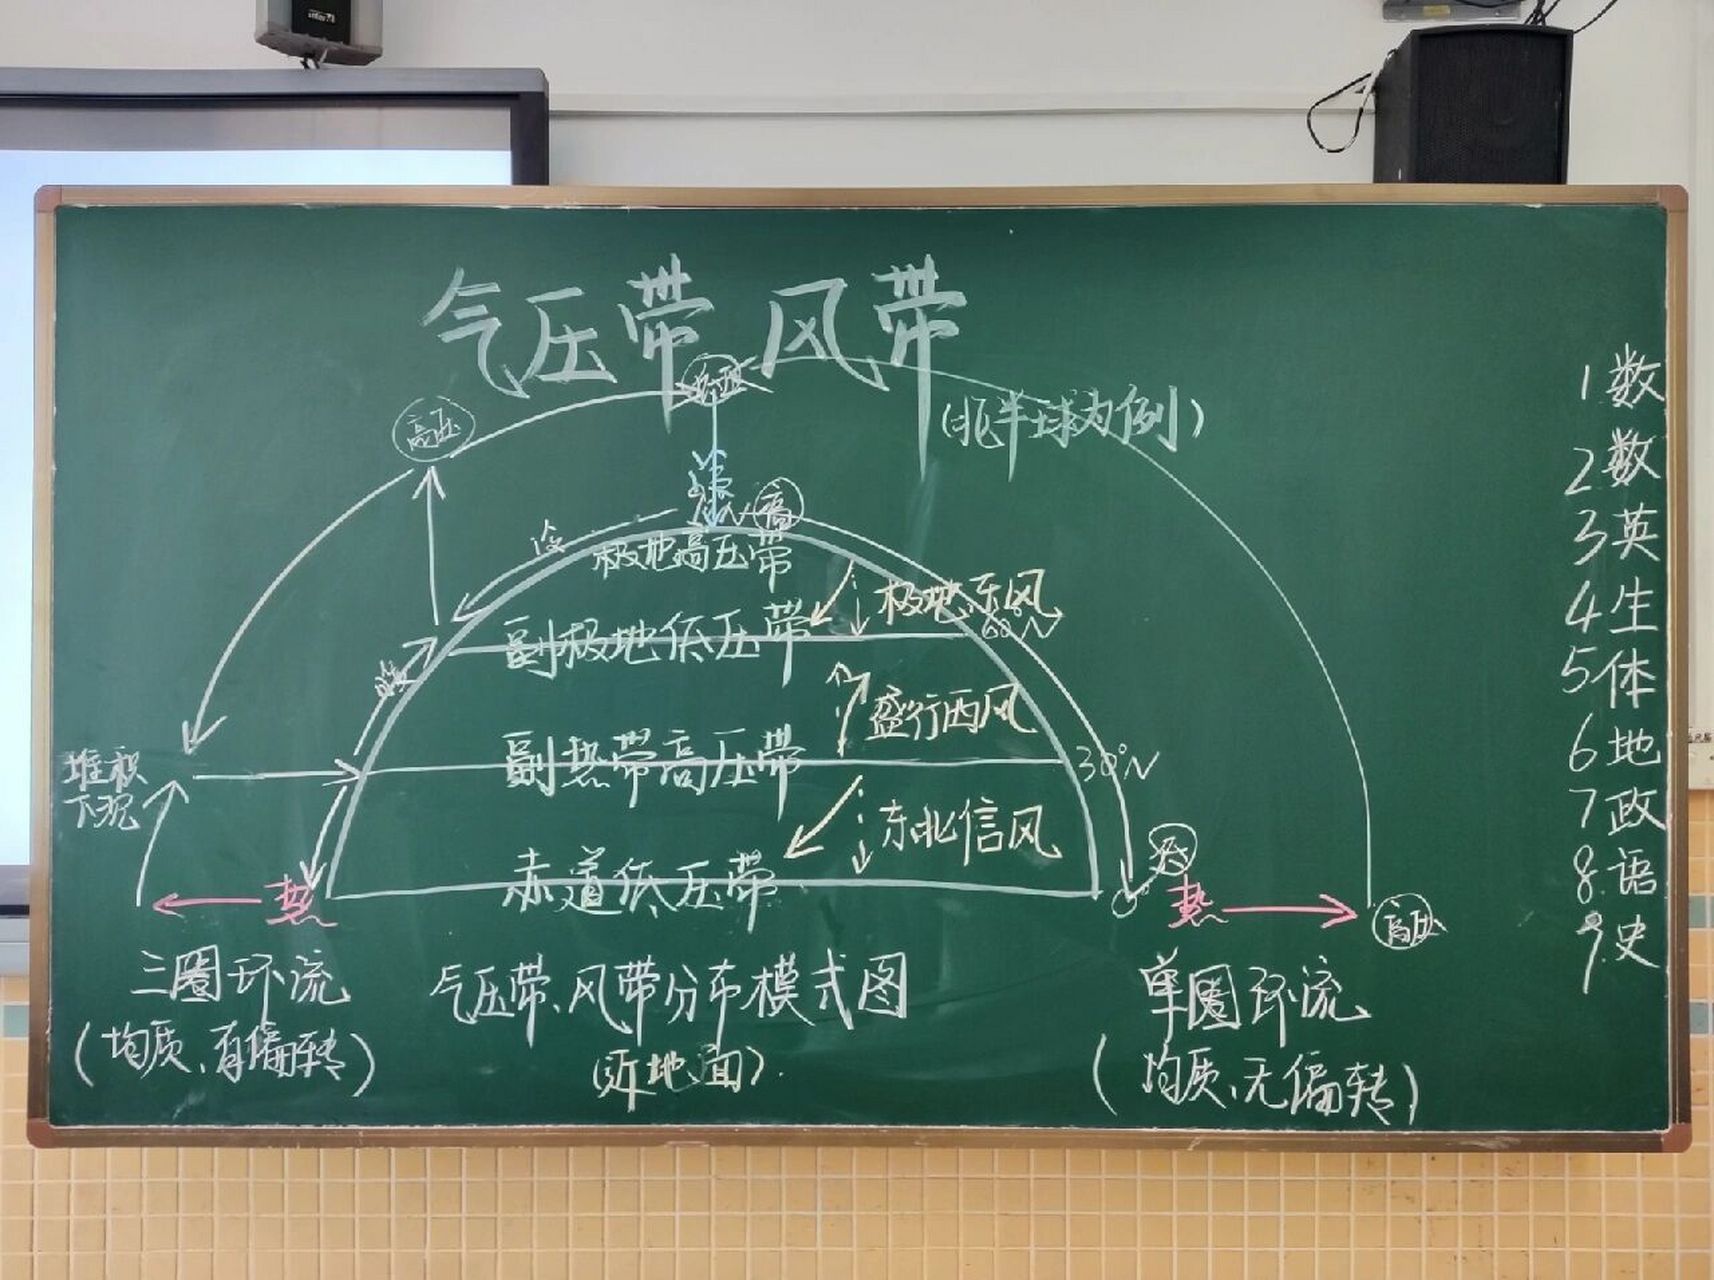 气压带 风带
(北半球为例)
高压
冷
高
极地高压带
极地东风
副极地低压带
60°N
暖
盛行西风
副热带高压带
30°N
堆积
下沉
东北信风
赤道低压带
0°
热
热
高压
三圈环流
(均质、有偏转)
气压带、风带分布模式图
(近地面).
单圈环流
(均质、无偏转)
1 数
2 数
3 英
4 生
5 体
6 地
7 政
8 语
9 史